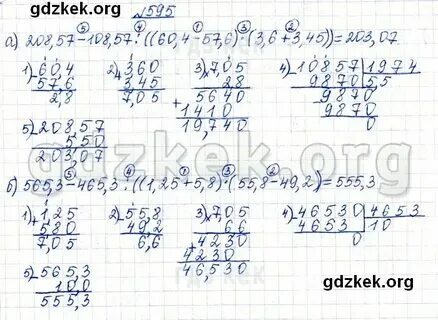 gdzkek.org
№595
а) 208,57-108,57:((60,4-57,6)·(3,6+3,45))=203,07
1) 60,4
57,6
2,8
2) 3,60
3,45
7,05
3) 7,05
2,8
5640
+1410
19,740
4) 10857 1974
9870 5,5
9870
9870
0
5) 208,57
5,50
203,07
gdzkek.org
б) 565,3-465,3:((1,25+5,8)·(55,8-49,2))=555,3
1) 1,25
5,80
7,05
2) 55,8
49,2
6,6
3) 7,05
6,6
4230
4230
46,530
4) 46530 4653
4653 10
0
5) 565,3
10,0
555,3
gdzkek.org